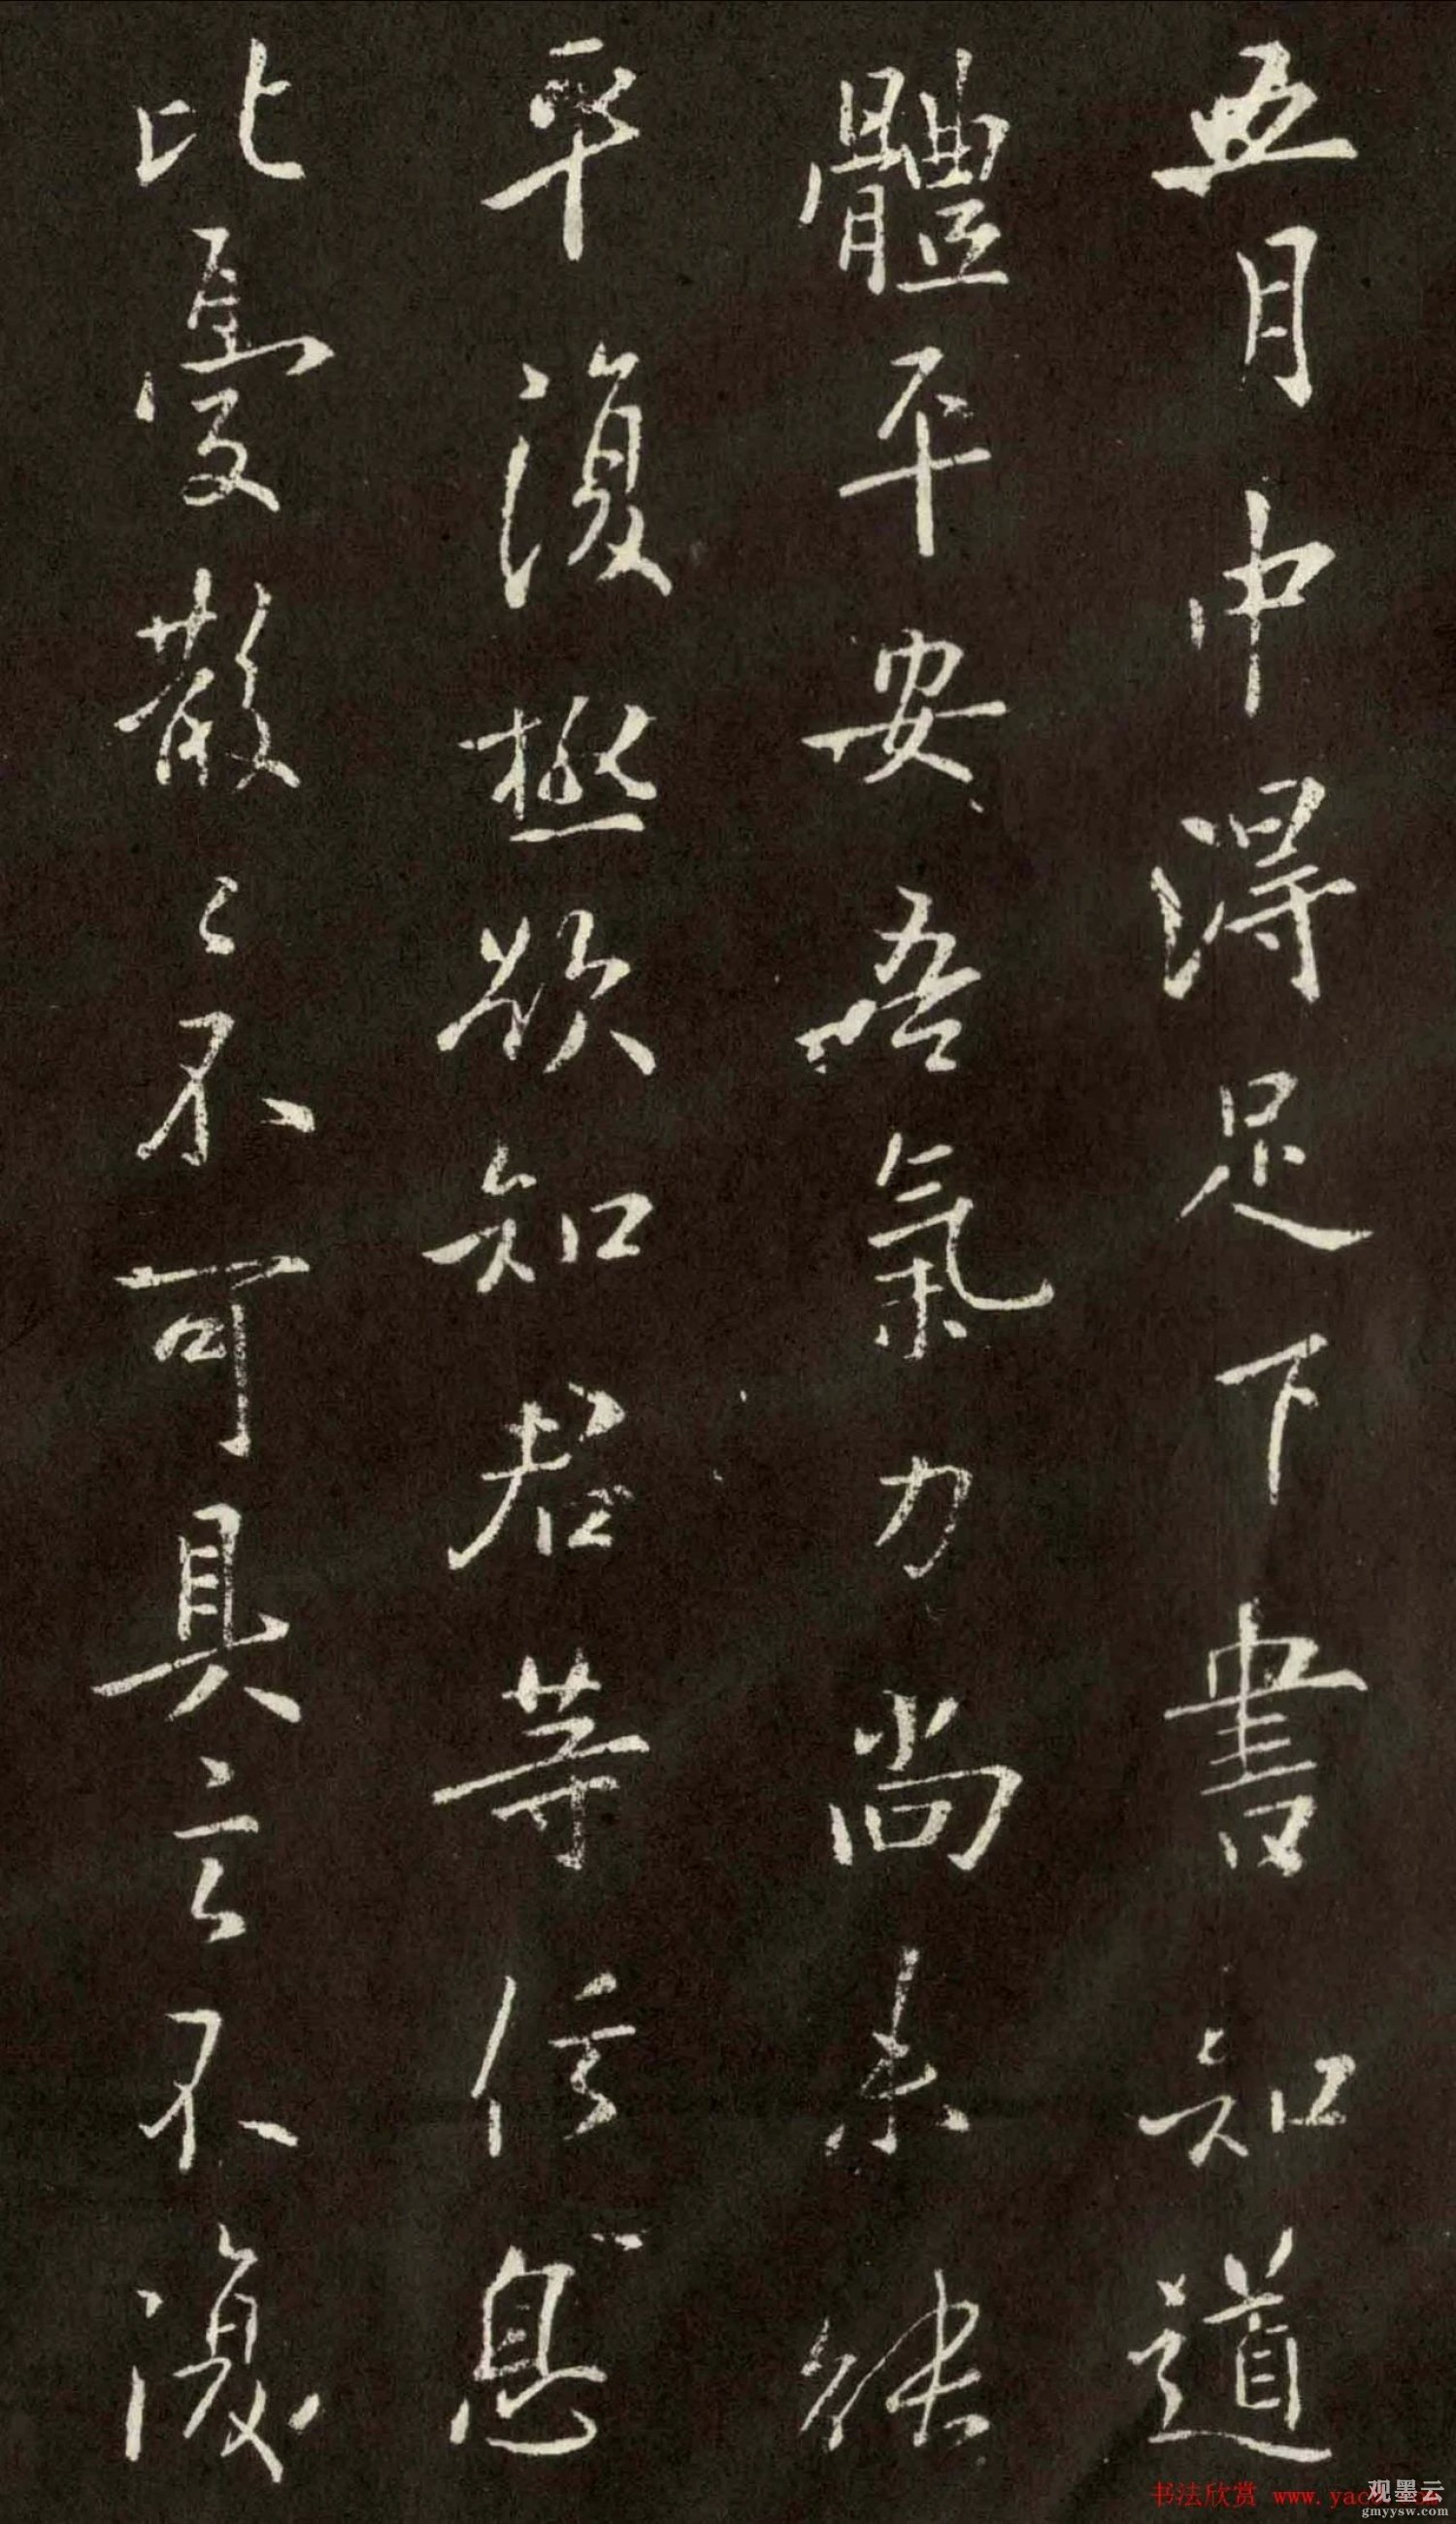 五月中得足下書知道
體平安吾氣力尚未能
平復極欲知君等信息
比憂散〻不可具言不復
书法欣赏 www.yac
观墨云
gmyysw.com